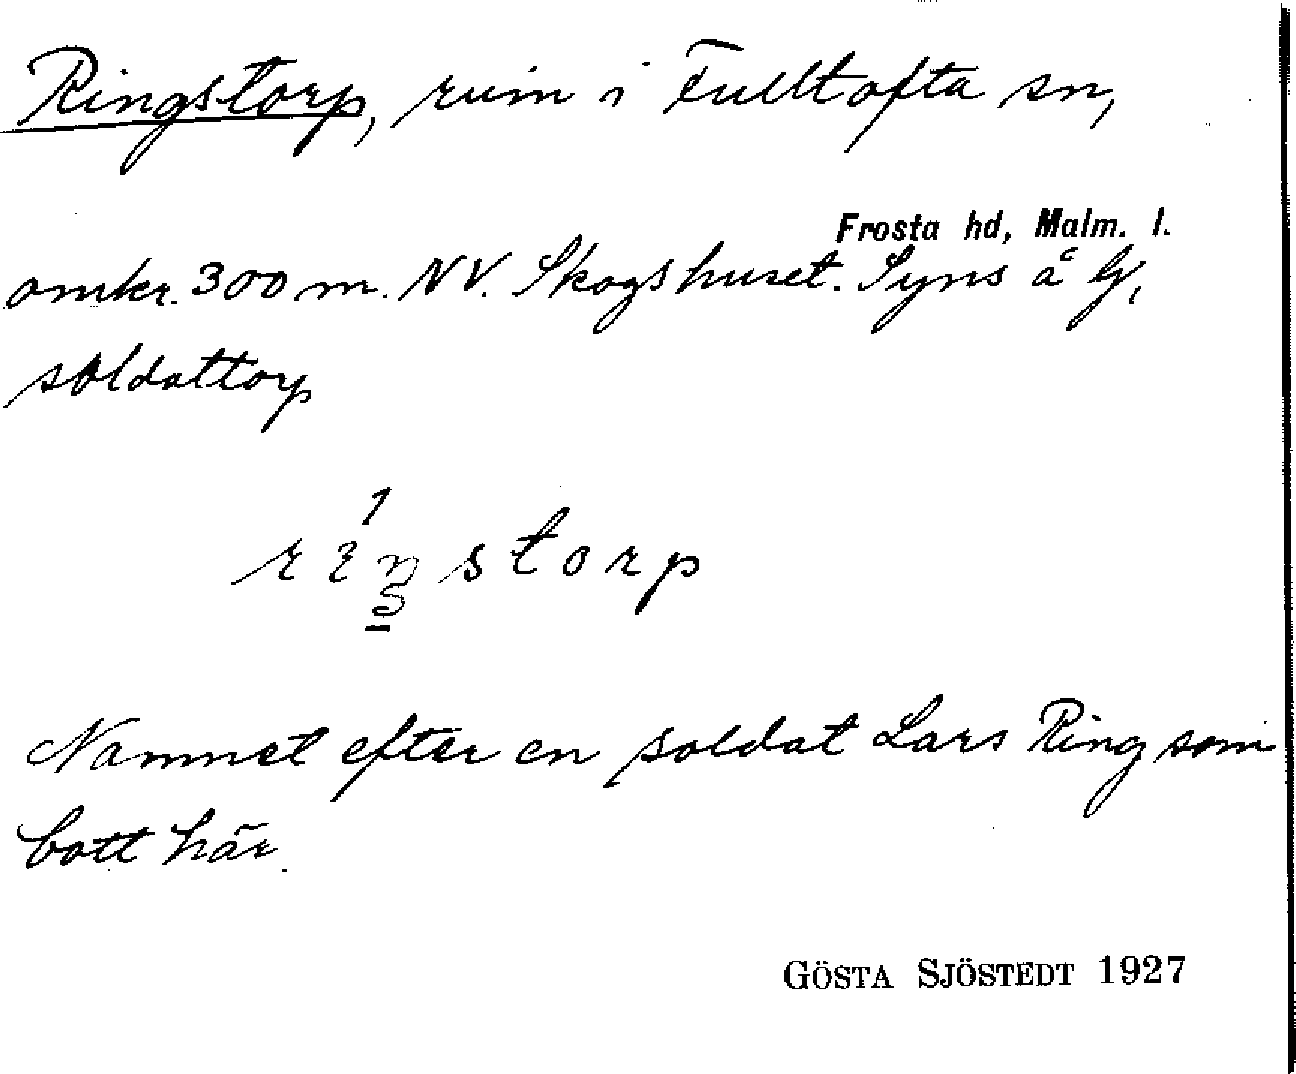 Ringstorp, ruin i Fulltofta sn,
Frosta hd, Malm. l.
omkr. 300 m. NV. Skogshuset. Syns å
soldattorp
storp
Namnet efter en soldat Lars Ring som
bott här.
GÖSTA SJÖSTEDT 1927